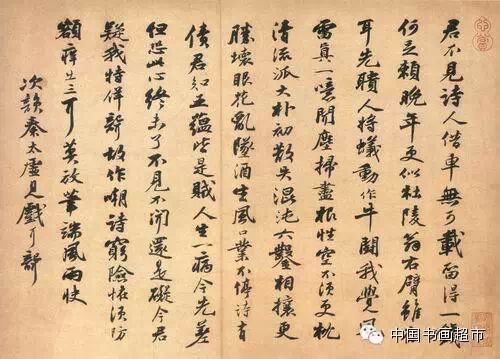 君不見詩人借車無可載留得一錢
何足賴晚年更似杜陵翁右臂雖
存耳先聵人將蟻動作牛鬬我覺風
雷真一噫聞塵掃盡根性空不須更枕
清流派大朴初散失混沌六鑿相攘更
勝壞眼花亂墜酒生風口業不停詩有
債君知五蘊皆是賊人生一病今先差
但恐此心終未了不見不聞還是礙今君
疑我特佯聾故作嘲詩窮險怪須防
額痒出三耳莫放筆端風雨快
次韻秦太虛見戲耳聾
中国书画超市